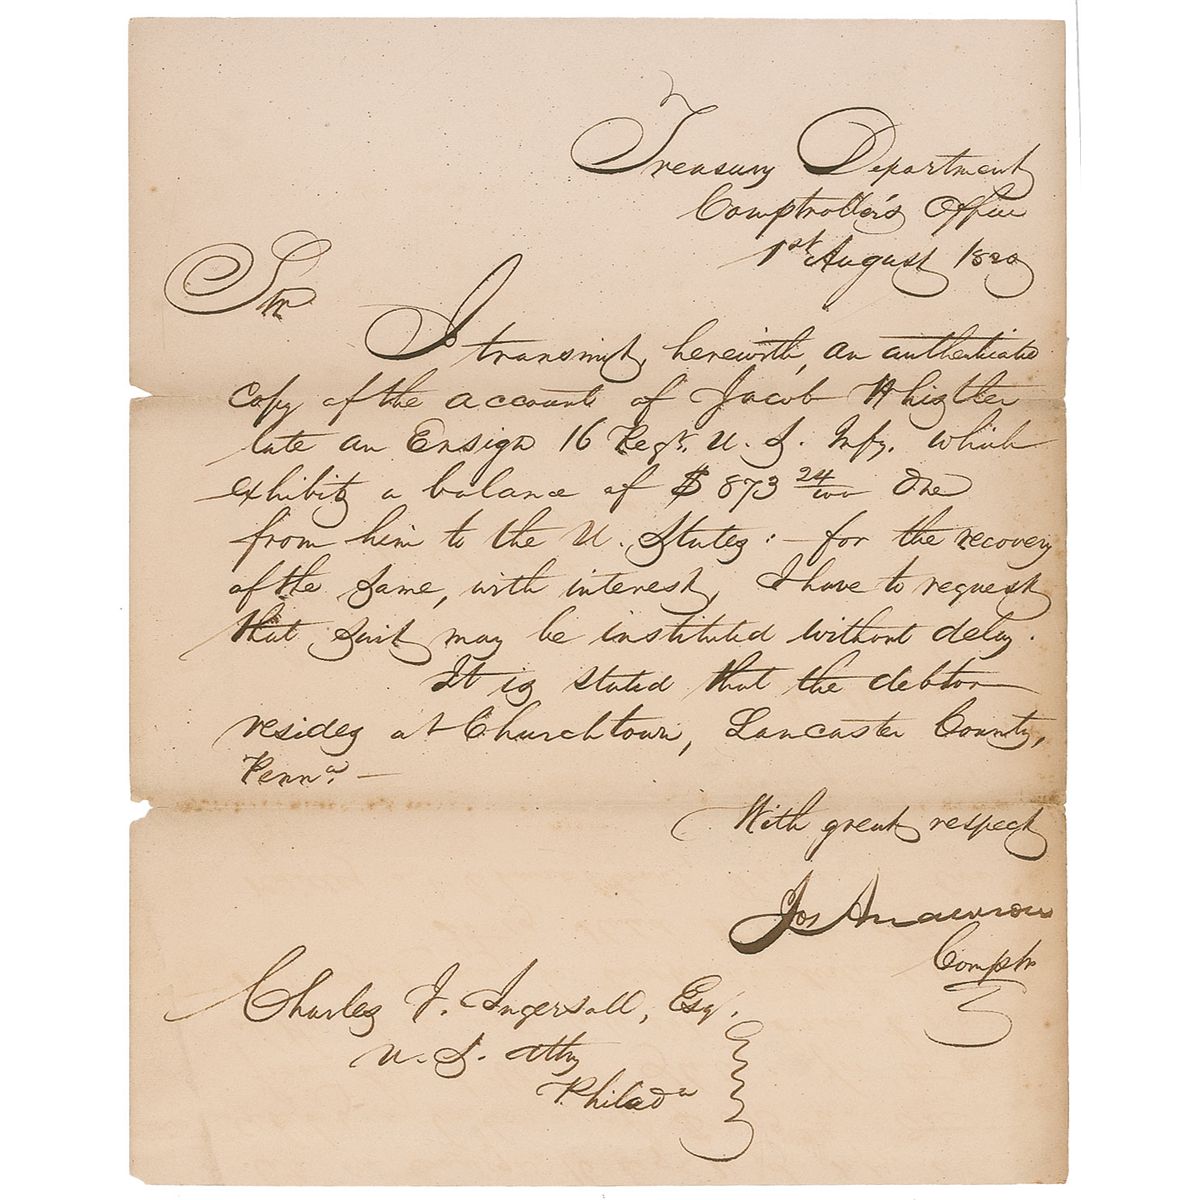 Treasury Department
Comptroller's Office
1st August 1820
Sir
I transmit, herewith, an authenticated
copy of the account of Jacob Whistler
late an Ensign 16 Regt. U. S. Infy. which
exhibits a balance of $873 24/100 due
from him to the U. States: – for the recovery
of the same, with interest, I have to request
that suit may be instituted without delay.
It is stated that the debtor
resides at Churchtown, Lancaster County,
Penna. –
With great respect
Jos Anderson
Comptr
Charles J. Ingersoll, Esqr.
U. S. Atty
Philada